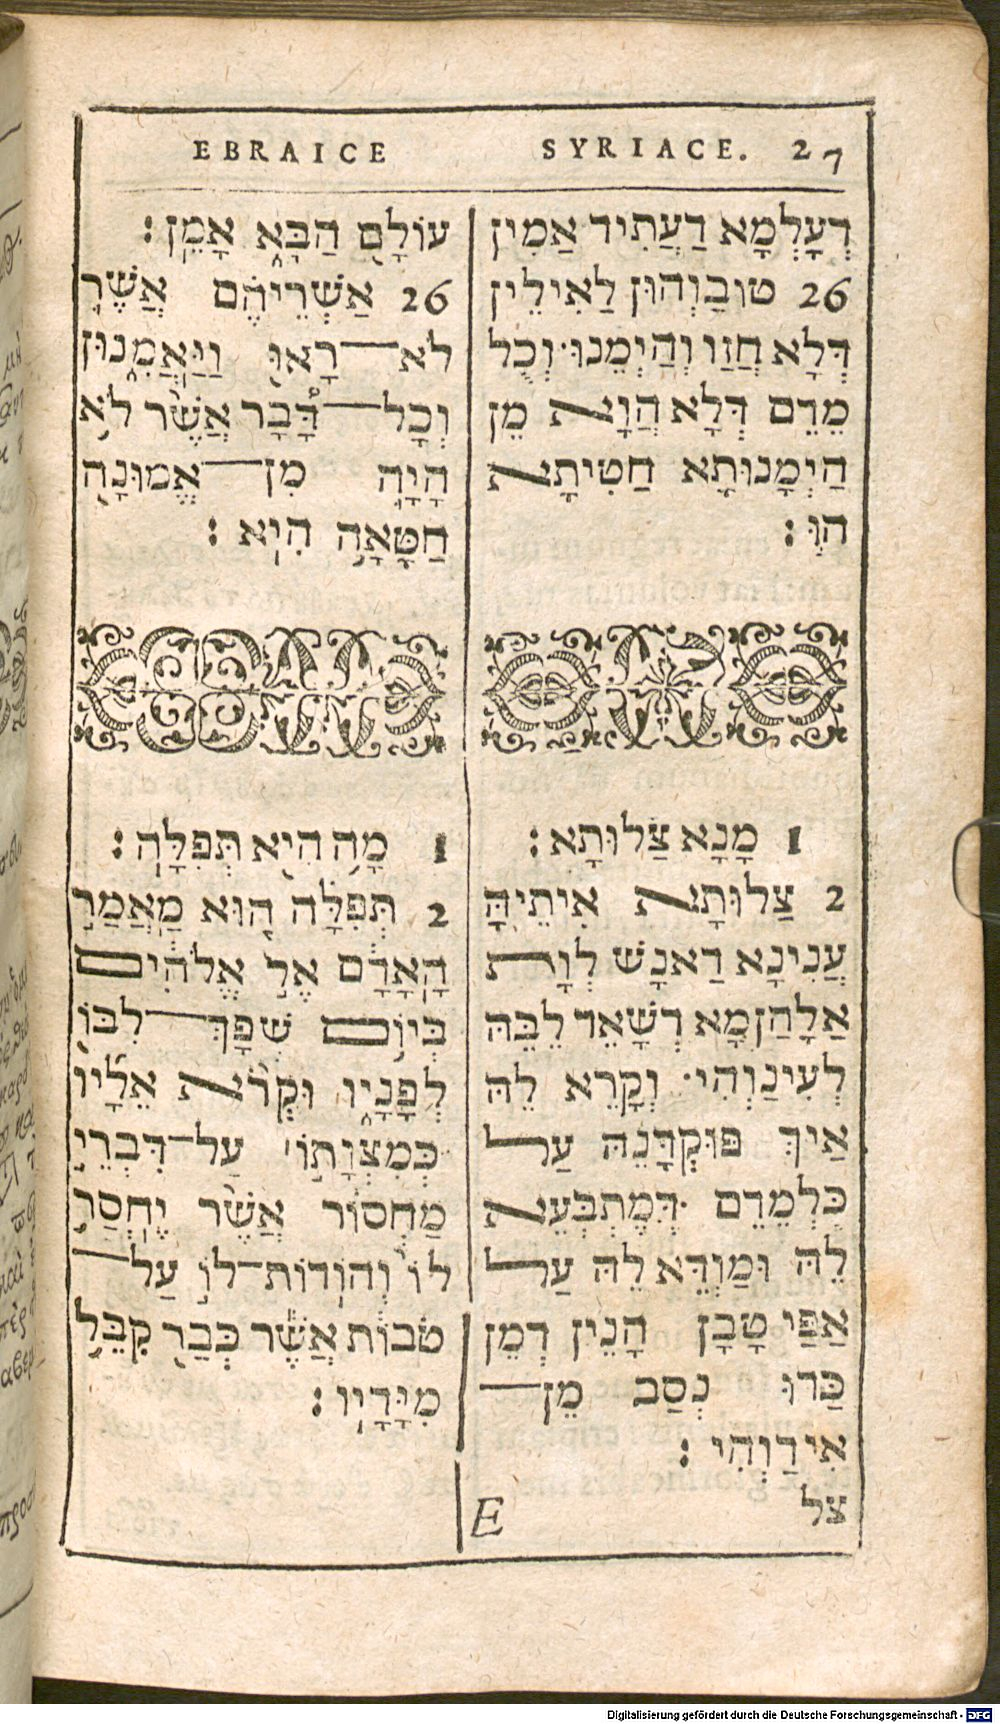 EBRAICE SYRIACE. 27
דְּעָלְמָא דַּעֲתִיד אַמִין
26 טוּבַוְהוּן לַאִילֵין
דְּלָא חֲזַו וְהַיְמֵנוּ· וְכָל
מֵדֵם דְּלָא הֲוָת מֵן
הַיְמָנוּתָא חַטִיתָא
הוּ :
1 מָנָא צַלוּתָא :
2 צַלוּתָא אִיתֵיהָּ
עֲנִינָא דַאנָשׁ לְוָת
אַלָהַןמָא דְּשָׁאֵד לֵבֵּהּ
לְעִינַוְהִי· וְקָרֵא לֵהּ
אַיךְ פּוּקְדָּנֵהּ עַל
כָּלְמֵדֵם דְּמֶתְבְּעֵא·
לֵהּ וּמַוְדֵּא לֵהּ עַל
אַפַּי טָבָן הָנֵין דְמֵן
כַּדוּ נְסַב מֵן
אִידַוְהִי :
צל
עוֹלָם הַבָּא אָמֵן׃
26 אַשְׁרֵיהֶם אֲשֶׁר
לֹא־רָאוּ וַיַּאֲמִנוּן
וְכָל־דָּבָר אֲשֶׁר לֹא
הָיָה מִן־אֱמוּנָה
חַטָּאָה הִיא׃
1 מָה הִיא תְּפִלָּה׃
2 תְּפִלָּה הוּא מַאֲמַר
הָאָדָם אֶל אֱלֹהִים
בְּיוֹם שִׁפָּךְ־לִבּוֹ
לְפָנָיו וּקְרֹא אֵלָיו
כְּמִצְוָתוֹ עַל־דִּבְרֵי
מַחְסוֹר אֲשֶׁר יֶחְסַר
לוֹ וְהוֹדוֹת־לוֹ עַל־
טֹבוֹת אֲשֶׁר כְּבַר קִבֵּל
מִיָּדָיו׃
E
Digitalisierung gefördert durch die Deutsche Forschungsgemeinschaft - DFG